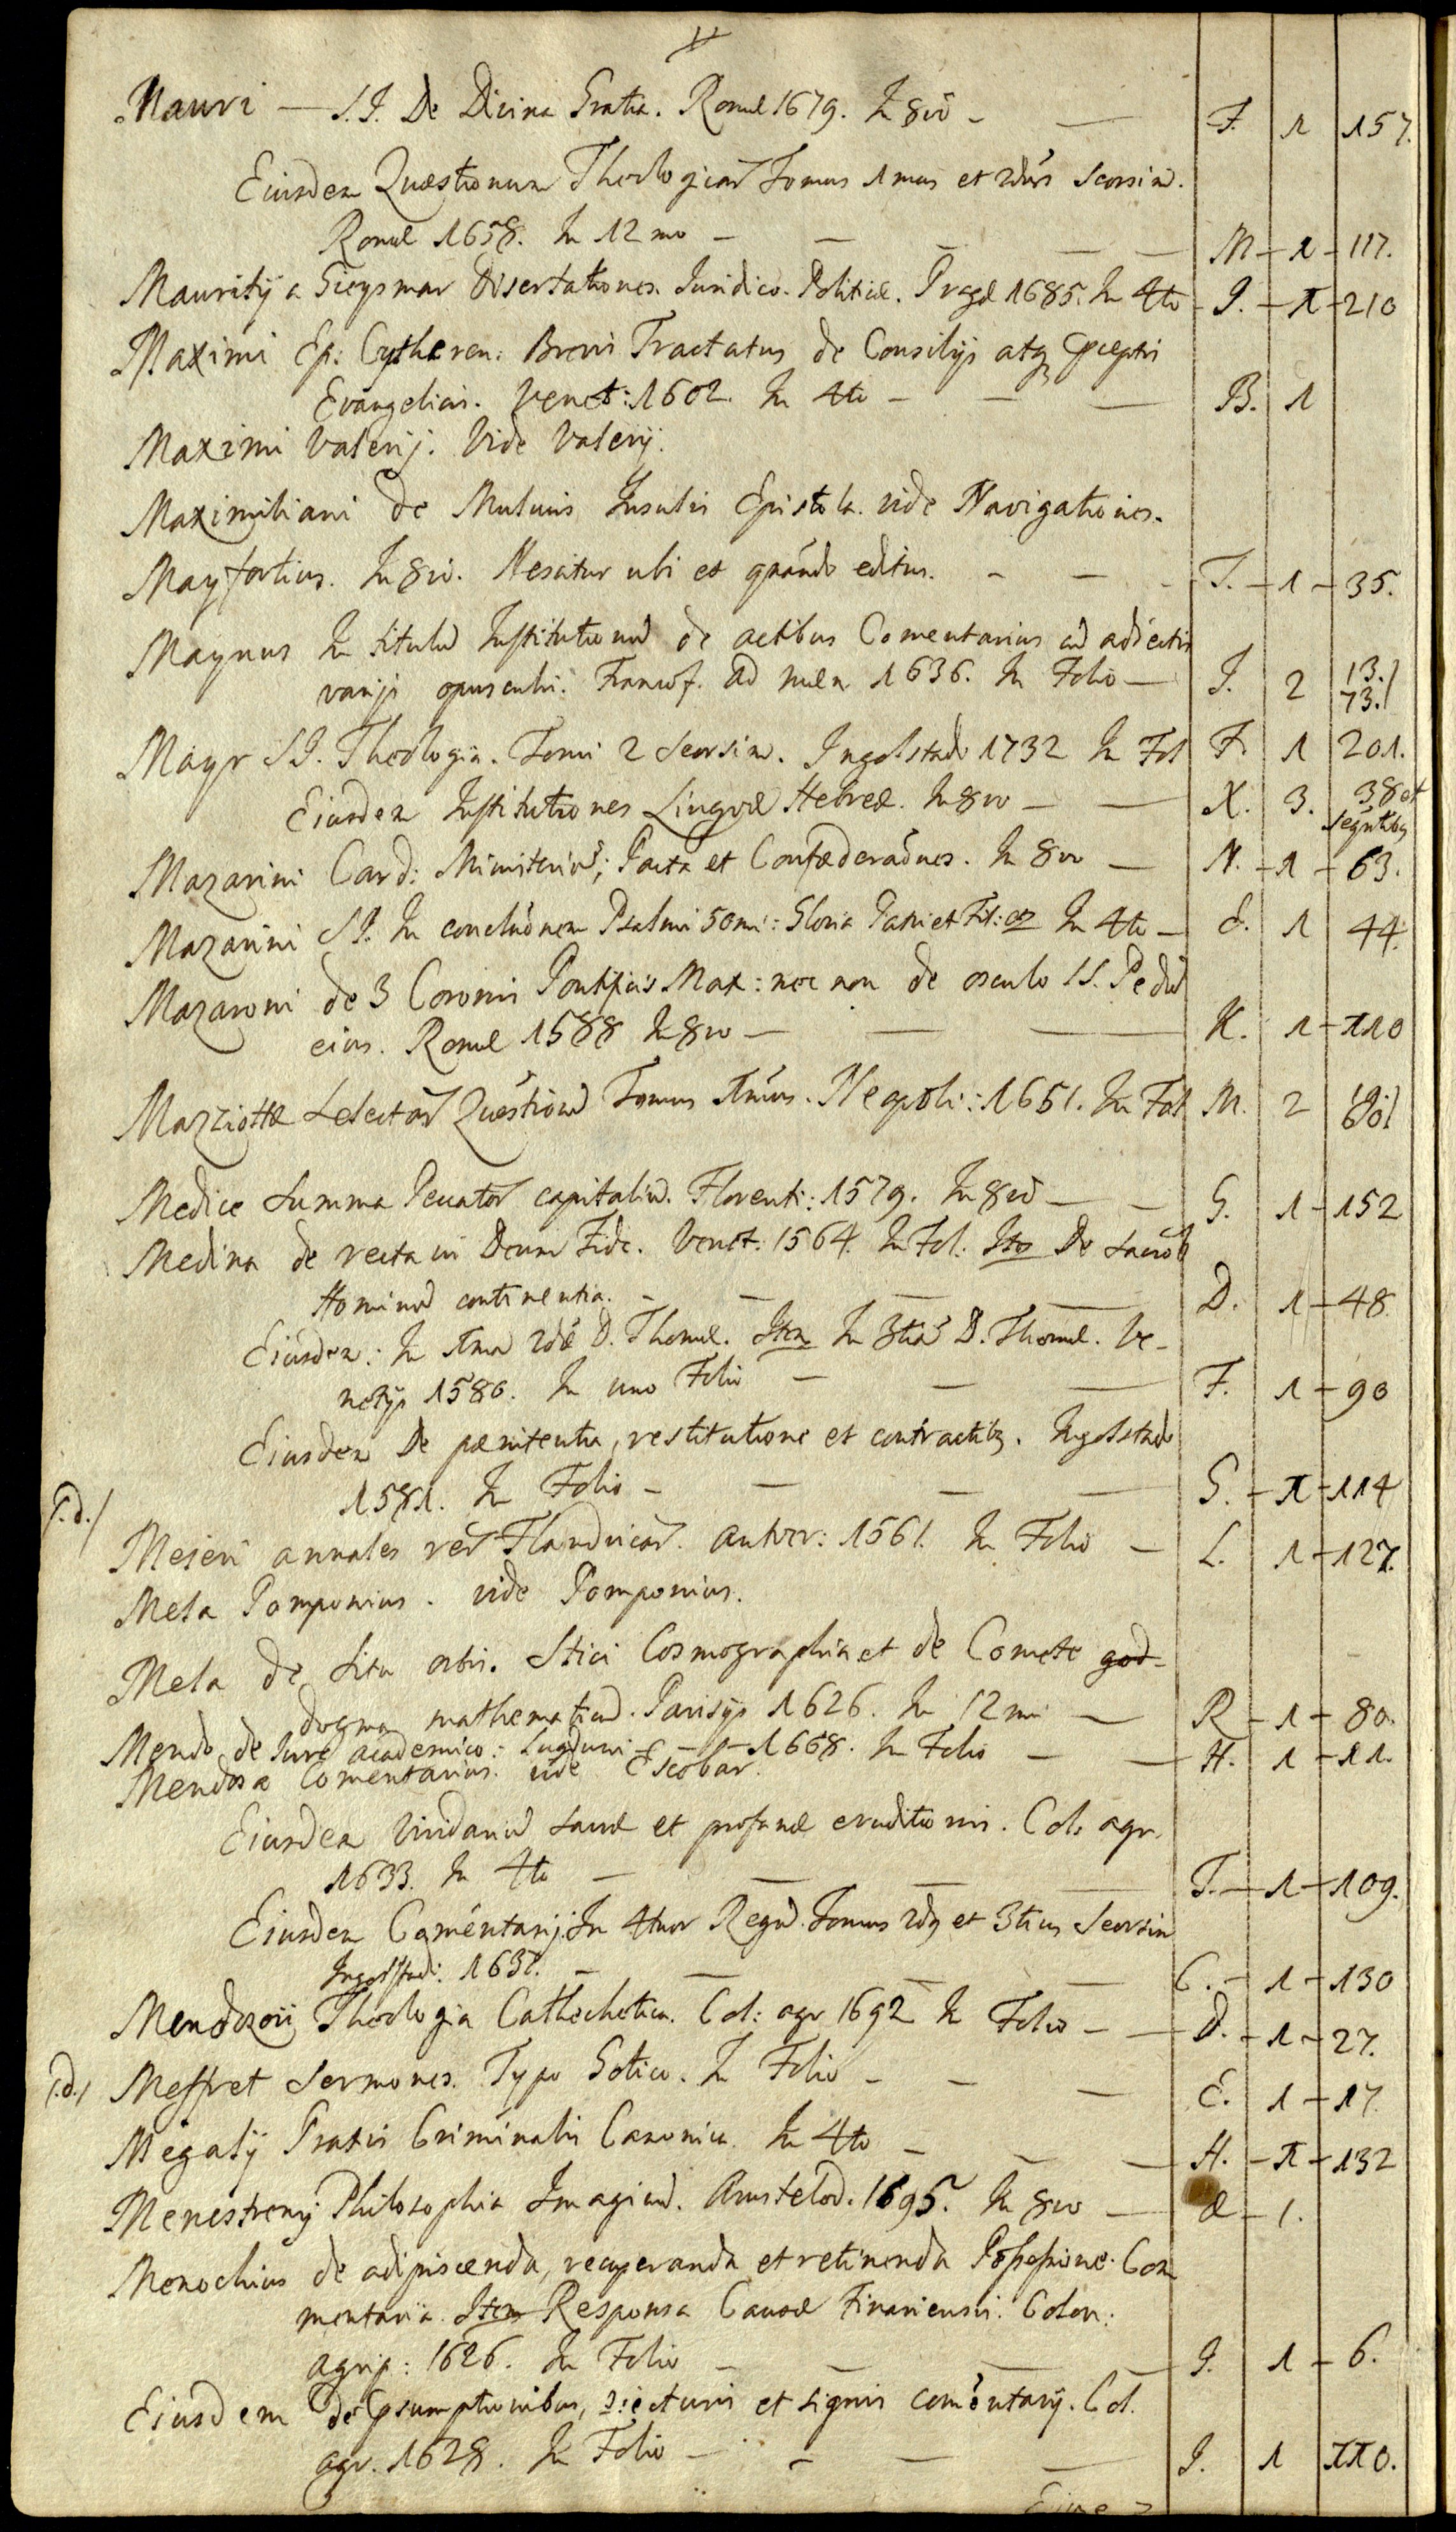 Mauri — S.I. De Divina Gratia. Romæ 1679. In 8vo — — F. 1 157.
Eiusdem Quæstionum Theologicar Tomus 1mus et 2dus seorsim.
Romæ 1658. In 12mo — — — — — M — 1 — 117.
Mauritÿ a Giegsmar Disertationes Iuridico-Politicæ. Pragæ 1685. In 4to — I. — 1 — 210
Maximi Ep: Cytheren: Brevis Tractatus de Consilijs atq præceptis
Evangelicis. Venet: 1602. In 4to — — — B. 1
Maximi Valerij. Vide Valerÿ.
Maximiliani de Molucis Insulis Epistola. vide Navigationes.
Mayfortius. In 8vo. Nescitur ubi et quando editus. — — — T. — 1 — 35.
Maynus In titulum Institutionum de actibus Comentarius cum adiectis
varijs opusculis. Francof. ad Mæn 1636. In Folio — I. 2 13./ 73./
Mayr S.I. Theologia. Tomi 2 seorsim. Ingolstadi 1732 In Fol F. 1 201.
Eiusdem Institutiones Linguæ Hebreæ. In 8vo — — X. 3. 38 et sequtibq
Mazarini Card: Ministerium; Pacta et Confæderaones. In 8vo — N. — 1 — 63.
Mazarini S.I. In conclusionem Psalmi 50mi: Gloria Patri et Fil: etz In 4to — d. 1 44.
Mazaroni de 3 Coronis Pontificis Max: nec non de osculo SS. Pedum
eius. Romæ 1588 In 8vo — — — K. 1 — 110
Mazziottæ Selectar Quæstionum Tomus 1mus. Neapoli: 1651. In Fol M. 2
Medice Summa Peccator capitalium. Florenti: 1579. In 8vo — — G. 1 — 152
Medina de recta in Deum Fide. Venet: 1564. In Fol. Item De sacror
Hominum continentia. — — — — D. 1 — 48.
Eiusdem: In 1mam 2dæ D. Thomæ. Item In 3tiam D. Thomæ. Ve-
netijs 1580. In uno Folio — — — F. 1 — 90
Eiusdem De pænitentia, restitutione et contractibq. Ingolstadi
1581. In Folio — — — — G. — 1 — 114
/:d:/ Mejeri annales rer Flandricar. Antver: 1561. In Folio — L. 1 — 127.
Mela Pomponius. vide Pomponius.
Mela de situ orbis. Stici Cosmographia et de Comete god-
dogma mathematicum. Parisijs 1626. In 12mo — R — 1 — 80.
Mendo de Iure academico: Lugduni — — — 1668. In Folio — — H. 1 — 11.
Mendosæ Comentarius. vide Escobar.
Eiusdem Viridarium sacræ et profanæ eruditionis. Col: agr.
1633. In 4to — — — — T. — 1 — 109.
Eiusdem Coméntarij In 4tuor Regum. Tomus 2dq et 3tius seorsim
Ingolstadi: 1637. — — — — C. — 1 — 130
Mendozoii Theologia Cathechetica. Col: agr 1692 In Folio — — D. — 1 — 27.
/:d:/ Meffret Sermones. Typo Gotico. In Folio — — — E. 1 — 17.
Megalÿ Praxis Criminalis Canonica. In 4to — — — H. — 1 — 132
Menestrerij Philosophia Imaginum. Amstelod. 1695. In 8vo — æ — 1.
Menochius de adipiscenda, recuperanda et retinenda Possessione. Com
mentaria. Item Responsa Causæ Finariensis. Colon:
agrip: 1626. In Folio — — — — I. 1 — 6.
Eiusdem de præsumptionibus, coniecturis et signis coméntarÿ. Col.
agr. 1628. In Folio — — — — I. 1 110.